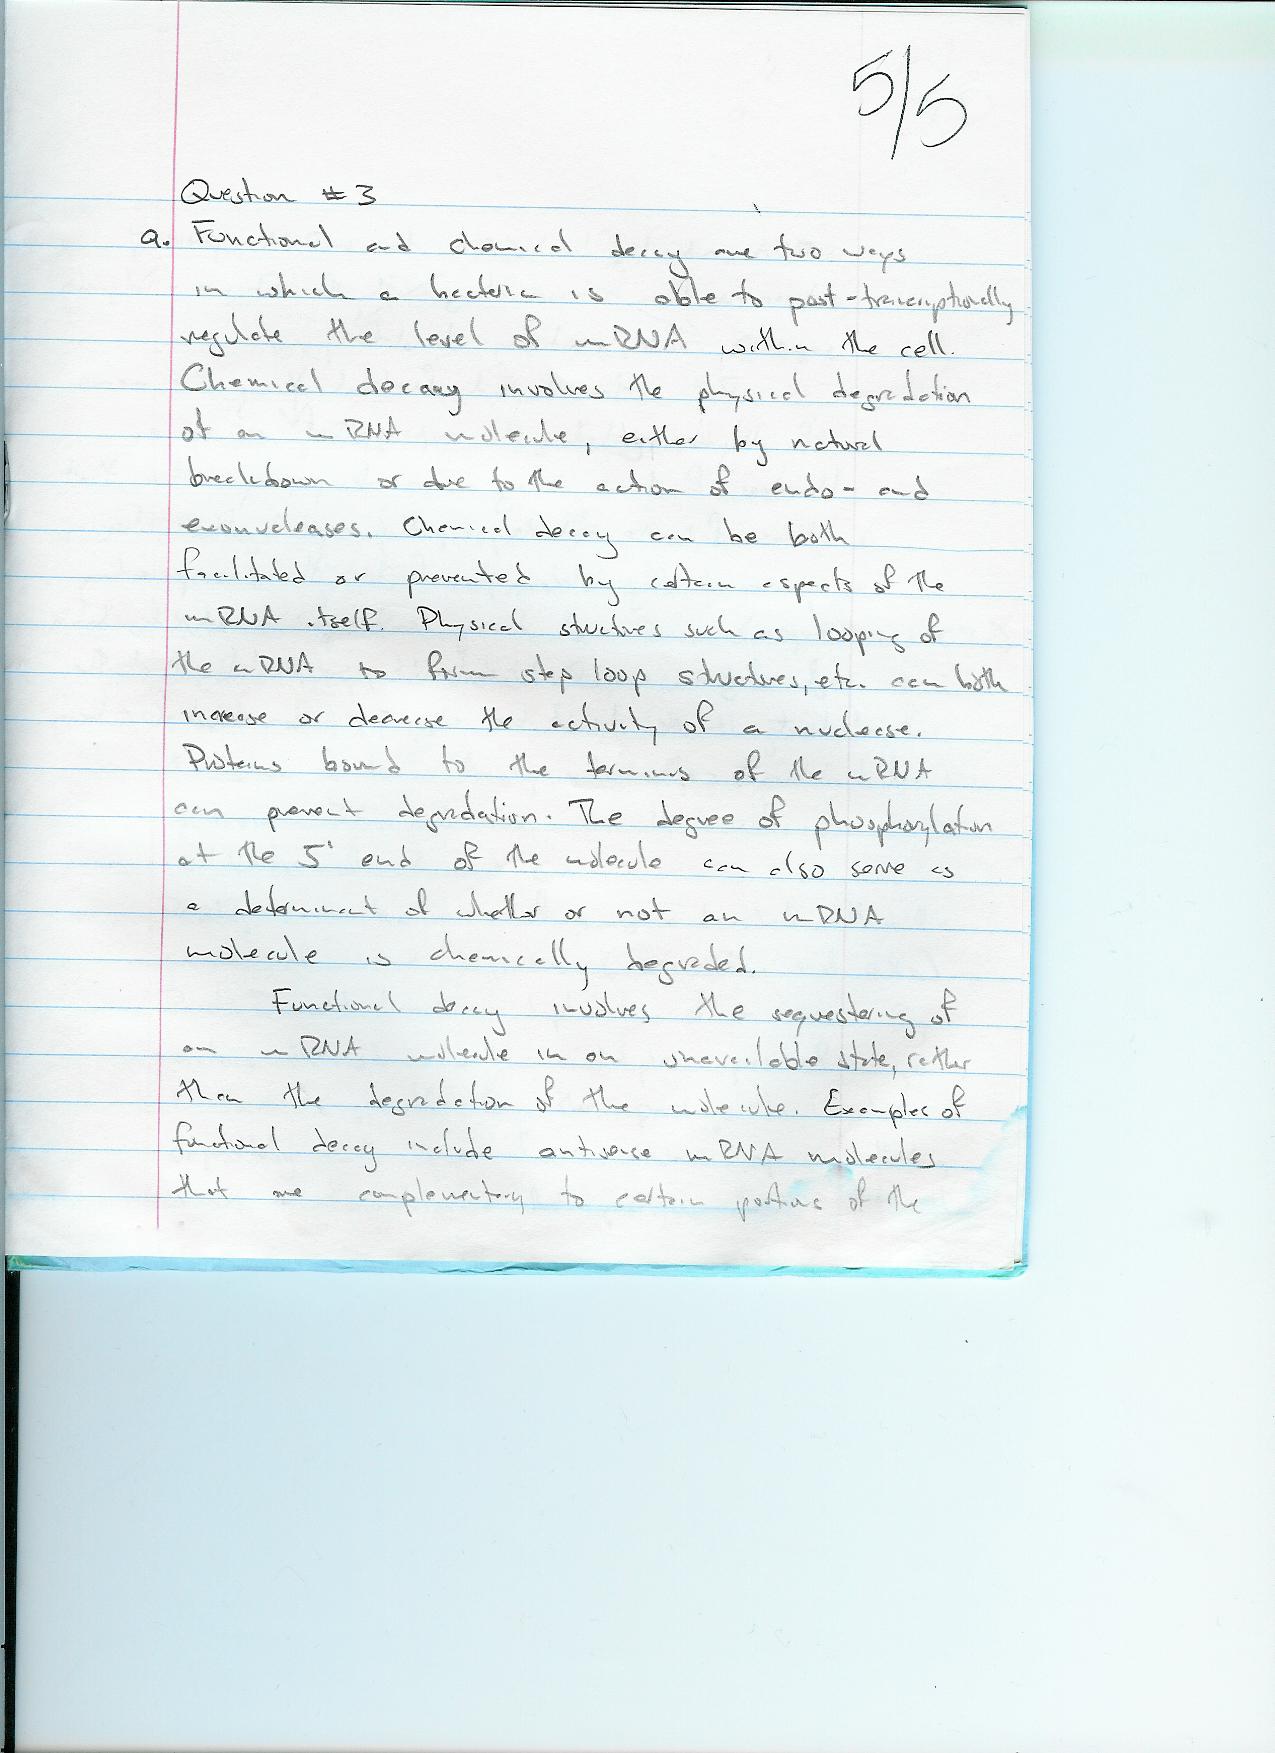 5/5
Question # 3
a. Functional and chemical decay are two ways
in which a bacteria is able to post-transcriptionally
regulate the level of mRNA within the cell.
Chemical decay involves the physical degradation
of an mRNA molecule, either by natural
breakdown or due to the action of endo- and
exonucleases. Chemical decay can be both
facilitated or prevented by certain aspects of the
mRNA itself. Physical structures such as looping of
the mRNA to form step loop structures, etc. can both
increase or decrease the activity of a nuclease.
Proteins bound to the terminus of the mRNA
can prevent degradation. The degree of phosphorylation
at the 5' end of the molecule can also serve as
a determinant of whether or not an mRNA
molecule is chemically degraded.
Functional decay involves the sequestering of
an mRNA molecule in an unavailable state, rather
than the degradation of the molecule. Examples of
functional decay include antisense mRNA molecules
that are complementary to certain portions of the